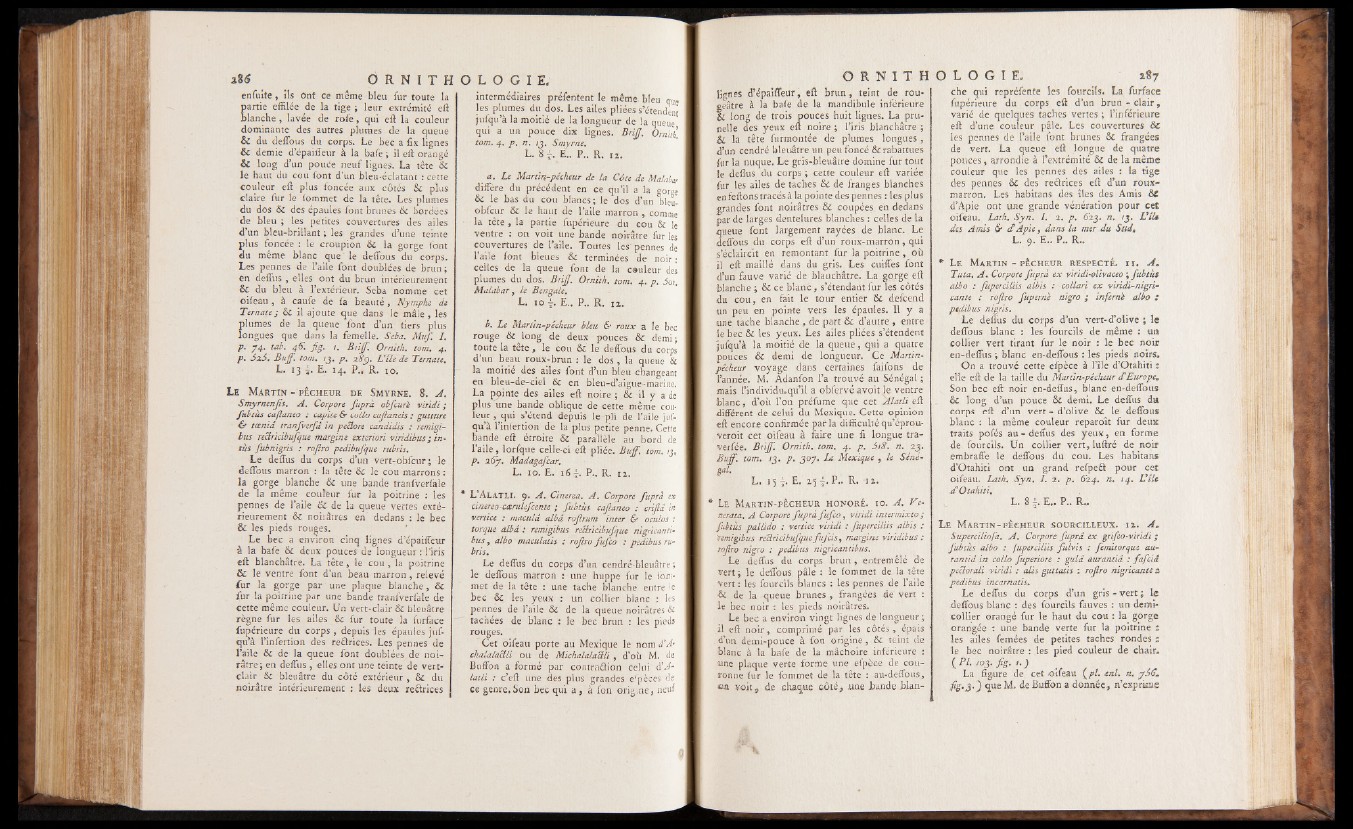 286 ORNITHOLOGIE.
enſuite, ils ont ce même bleu ſur toute la
partie effilée de la tige ; leur extrémité eſt
blanche, lavée de roſe, qui eſt la couleur
dominante des autres plumes de la queue
& du deſſous du corps. Le bec a ſix lignes
& demie d'épaiſſeur à la baſe ; il eſt orangé
& long d'un pouce neuf lignes. La tête &
le haut du cou ſont d'un bleu-éclatant : cette
couleur eſt plus foncée aux côtés & plus
claire ſur le ſommet de la tête. Les plumes
du dos & des épaules ſont brunes & bordées
de bleu ; les petites couvertures des ailes
d'un bleu-brillant ; les grandes d'une teinte
plus foncée : le croupion & la gorge ſont
du même blanc que le deſſous du corps.
Les pennes de l'aile ſont doublées de brun ;
en deſſus, elles ont du brun intérieurement
& du bleu à l'extérieur. Seba nomme cet
oiſeau, à cauſe de ſa beauté, Nymphe de
Ternate ; & il ajoute que dans le mâle, les
plumes de la queue ſont d'un tiers plus
longues que dans la femelle. Seba. Muſ. I.
p. 74. tab. 46. fig. 1. Briſſ. Ornith. tom. 4.
p. 525. Buff. tom. 13. p. 289. L'île de Ternate.
L. 13 1/4. E. 14. P.. R. 10.
LE MARTIN-PÊCHEUR DE SMYRNE. 8. A.
Smyrnenſis. A. Corpore ſuprà obſcurè viridi ;
ſubtùs caſtaneo : capite & collo caſtaneis : gutture
& tæniâ tranſverſâ in pectore candidis : remigi-
bus rectricibuſque margine exteriori viridibus ; in-
tùs ſubnigris : roſtro pedibuſque rubris.
Le deſſus du corps d'un vert-obſcur ; le
deſſous marron : la tête & le cou marrons :
la gorge blanche & une bande tranſverſale
de la même couleur ſur la poitrine : les
pennes de l'aile & de la queue vertes exté-
rieurement & noirâtres en dedans : le bec
& les pieds rouges.
Le bec a environ cinq lignes d'épaiſſeur
à la baſe & deux pouces de longueur : l'iris
eſt blanchâtre. La tête, le cou, la poitrine
& le ventre ſont d'un beau marron, relevé
ſur la gorge par une plaque blanche, &
ſur la poitrine par une bande tranſverſale de
cette même couleur. Un vert-clair & bleuâtre
règne ſur les ailes & ſur toute la ſurface
ſupérieure du corps, depuis les épaules juſ-
qu'à l'inſertion des rectrices. Les pennes de
l'aile & de la queue ſont doublées de noi-
râtre ; en deſſus, elles ont une teinte de vert-
clair & bleuâtre du côté extérieur, & du
noirâtre intérieurement : les deux rectrices
intermédiaires préſentent le même bleu que
les plumes du dos. Les ailes pliées s'étendent
juſqu'à la moitié de la longueur de la queue,
qui a un pouce dix lignes. Briſſ. Ornith.
tom. 4. p. n. 13. Smyrne.
L. 8 1/4. E.. P.. R. 12.
a. Le Martin-pêcheur de la Côte de Malabar
diffère du précédent en ce qu'il a la gorge
& le bas du cou blancs ; le dos d'un bleu-
obſcur & le haut de l'aile marron, comme
la tête, la partie ſupérieure du cou & le
ventre : on voit une bande noirâtre ſur les
couvertures de l'aile. Toutes les pennes de
l'aile ſont bleues & terminées de noir :
celles de la queue ſont de la couleur des
plumes du dos. Briſſ. Ornith. tom. 4. p. 501.
Malabar, le Bengale.
L. 10 1/4. E.. P.. R. 12.
b. Le Martin-pêcheur bleu & roux a le bec
rouge & long de deux pouces & demi ;
toute la tête, le cou & le deſſous du corps
d'un beau roux-brun : le dos, la queue &
la moitié des ailes ſont d'un bleu changeant
en bleu-de-ciel & en bleu-d'aigue-marine.
La pointe des ailes eſt noire ; & il y a de
plus une bande oblique de cette même cou-
leur, qui s'étend depuis le pli de l'aile juſ-
qu'à l'inſertion de la plus petite penne. Cette
bande eſt étroite & parallèle au bord de
l'aile, lorſque celle-ci eſt pliée. Buff. tom. 13.
p. 267. Madagaſcar.
L. 10. E. 16 1/4. P.. R. 12.
* L'ALATLI. 9. A. Cinerea. A. Corpore ſuprà ex
cinereo-cæruleſcente ; ſubtùs caſtaneo : criſtâ in
vertice : maculâ albâ roſtrum inter & oculos :
torque albâ : remigibus rectricibuſque nigricanti-
bus, albo maculatis : roſtro fuſco : pedibus ru-
bris.
Le deſſus du corps d'un cendré-bleuâtre ;
le deſſous marron : une huppe ſur le ſom-
met de la tête : une tache blanche entre le
bec & les yeux : un collier blanc : les
pennes de l'aile & de la queue noirâtres &
tachées de blanc : le bec brun : les pieds
rouges.
Cet oiſeau porte au Mexique le nom d'A-
chalalactli ou de Michalalactli, d'où M. de
Buffon a formé par contraction celui d'A-
latli : c'eſt une des plus grandes eſpèces de
ce genre. Son bec qui a, à ſon origine, neuf
ORNITHOLOGIE. 287
lignes d'épaiſſeur, eſt brun, teint de rou-
geâtre à la baſe de la mandibule inférieure
& long de trois pouces huit lignes. La pru-
nelle des yeux eſt noire ; l'iris blanchâtre ;
& la tête ſurmontée de plumes longues,
d'un cendré bleuâtre un peu foncé & rabattues
ſur la nuque. Le gris-bleuâtre domine ſur tout
le deſſus du corps ; cette couleur eſt variée
ſur les ailes de taches & de franges blanches
en feſtons tracés à la pointe des pennes : les plus
grandes ſont noirâtres & coupées en dedans
par de larges dentelures blanches : celles de la
queue ſont largement rayées de blanc. Le
deſſous du corps eſt d'un roux-marron, qui
s'éclaircit en remontant ſur la poitrine, où
il eſt maillé dans du gris. Les cuiſſes ſont
d'un fauve varié de blanchâtre. La gorge eſt
blanche ; & ce blanc, s'étendant ſur les côtés
du cou, en fait le tour entier & deſcend
un peu en pointe vers les épaules. Il y a
une tache blanche, de part & d'autre, entre
le bec & les yeux. Les ailes pliées s'étendent
juſqu'à la moitié de la queue, qui a quatre
pouces & demi de longueur. Ce Martin-
pêcheur voyage dans certaines ſaiſons de
l'année. M. Adanſon l'a trouvé au Sénégal ;
mais l'individu qu'il a obſervé avoit le ventre
blanc, d'où l'on préſume que cet Alatli eſt
différent de celui du Mexique. Cette opinion
eſt encore confirmée par la difficulté qu'éprou-
veroit cet oiſeau à faire une ſi longue tra-
verſée. Briſſ. Ornith. tom. 4. p. 518. n. 23.
Buff. tom. 13. p. 307. Le Mexique, le Séné-
gal.
L. 15 1/4. E. 25 1/4. P.. R. 12.
* LE MARTIN-PÊCHEUR HONORÉ. 10. A. Ve-
nerata. A Corpore ſuprà fuſco, viridi intermixto ;
ſubtùs pallido : vertice viridi : ſuperciliis albis :
remigibus rectricibuſque fuſcis, margine viridibus :
roſtro nigro : pedibus nigricantibus.
Le deſſus du corps brun, entremêlé de
vert ; le deſſous pâle : le ſommet de la tête
vert : les ſourcils blancs : les pennes de l'aile
& de la queue brunes, frangées de vert :
le bec noir : les pieds noirâtres.
Le bec a environ vingt lignes de longueur ;
il eſt noir, comprimé par les côtés, épais
d'un demi-pouce à ſon origine, & teint de
blanc à la baſe de la mâchoire inférieure :
une plaque verte forme une eſpèce de cou-
ronne ſur le ſommet de la tête : au-deſſous,
on voit, de chaque côté, une bande blan-
che qui repréſente les ſourcils. La ſurface
ſupérieure du corps eſt d'un brun-clair,
varié de quelques taches vertes ; l'inférieure
eſt d'une couleur pâle. Les couvertures &
les pennes de l'aile ſont brunes & frangées
de vert. La queue eſt longue de quatre
pouces, arrondie à l'extrémité & de la même
couleur que les pennes des ailes : la tige
des pennes & des rectrices eſt d'un roux-
marron. Les habitans des îles des Amis &
d'Apie ont une grande vénération pour cet
oiſeau. Lath. Syn. I. 2. p. 623. n. 13. L'île
des Amis & d'Apie, dans la mer du Sud.
L. 9. E.. P.. R..
* LE MARTIN-PÊCHEUR RESPECTÉ. 11. A.
Tuta. A. Corpore ſuprà ex viridi-olivaceo ; ſubtùs
albo : ſuperciliis albis : collari ex viridi-nigri-
cante : roſtro ſupernè nigro ; infernè albo :
pedibus nigris.
Le deſſus du corps d'un vert-d'olive ; le
deſſous blanc : les ſourcils de même : un
collier vert tirant ſur le noir : le bec noir
en-deſſus ; blanc en-deſſous : les pieds noirs.
On a trouvé cette eſpèce à l'île d'Otahiti :
elle eſt de la taille du Martin-pêcheur d'Europe.
Son bec eſt noir en-deſſus, blanc en-deſſous
& long d'un pouce & demi. Le deſſus du
corps eſt d'un vert-d'olive & le deſſous
blanc : la même couleur reparoît ſur deux
traits poſés au-deſſus des yeux, en forme
de ſourcils. Un collier vert, luſtré de noir
embraſſe le deſſous du cou. Les habitans
d'Otahiti ont un grand reſpect pour cet
oiſeau. Lath. Syn. I. 2. p. 624. n. 14. L'île
d'Otahiti.
L. 8 1/4. E.. P.. R..
LE MARTIN-PÊCHEUR SOURCILLEUX. 12. A.
Supercilioſa. A. Corpore ſuprà ex griſeo-viridi ;
ſubtùs albo : ſuperciliis fulvis : ſemitorque au-
rantiâ in collo ſuperiore : gulâ aurantiâ : faſciâ
pectorali viridi : alis guttatis : roſtro nigricante :
pedibus incarnatis.
Le deſſus du corps d'un gris-vert ; le
deſſous blanc : des ſourcils fauves : un demi-
collier orangé ſur le haut du cou : la gorge
orangée : une bande verte ſur la poitrine :
les ailes ſemées de petites taches rondes :
le bec noirâtre : les pied couleur de chair.
( Pl. 103. fig. 1. )
La figure de cet oiſeau ( pl. enl. n. 756.
fig. 3. ) que M. de Buffon a donnée, n'exprime